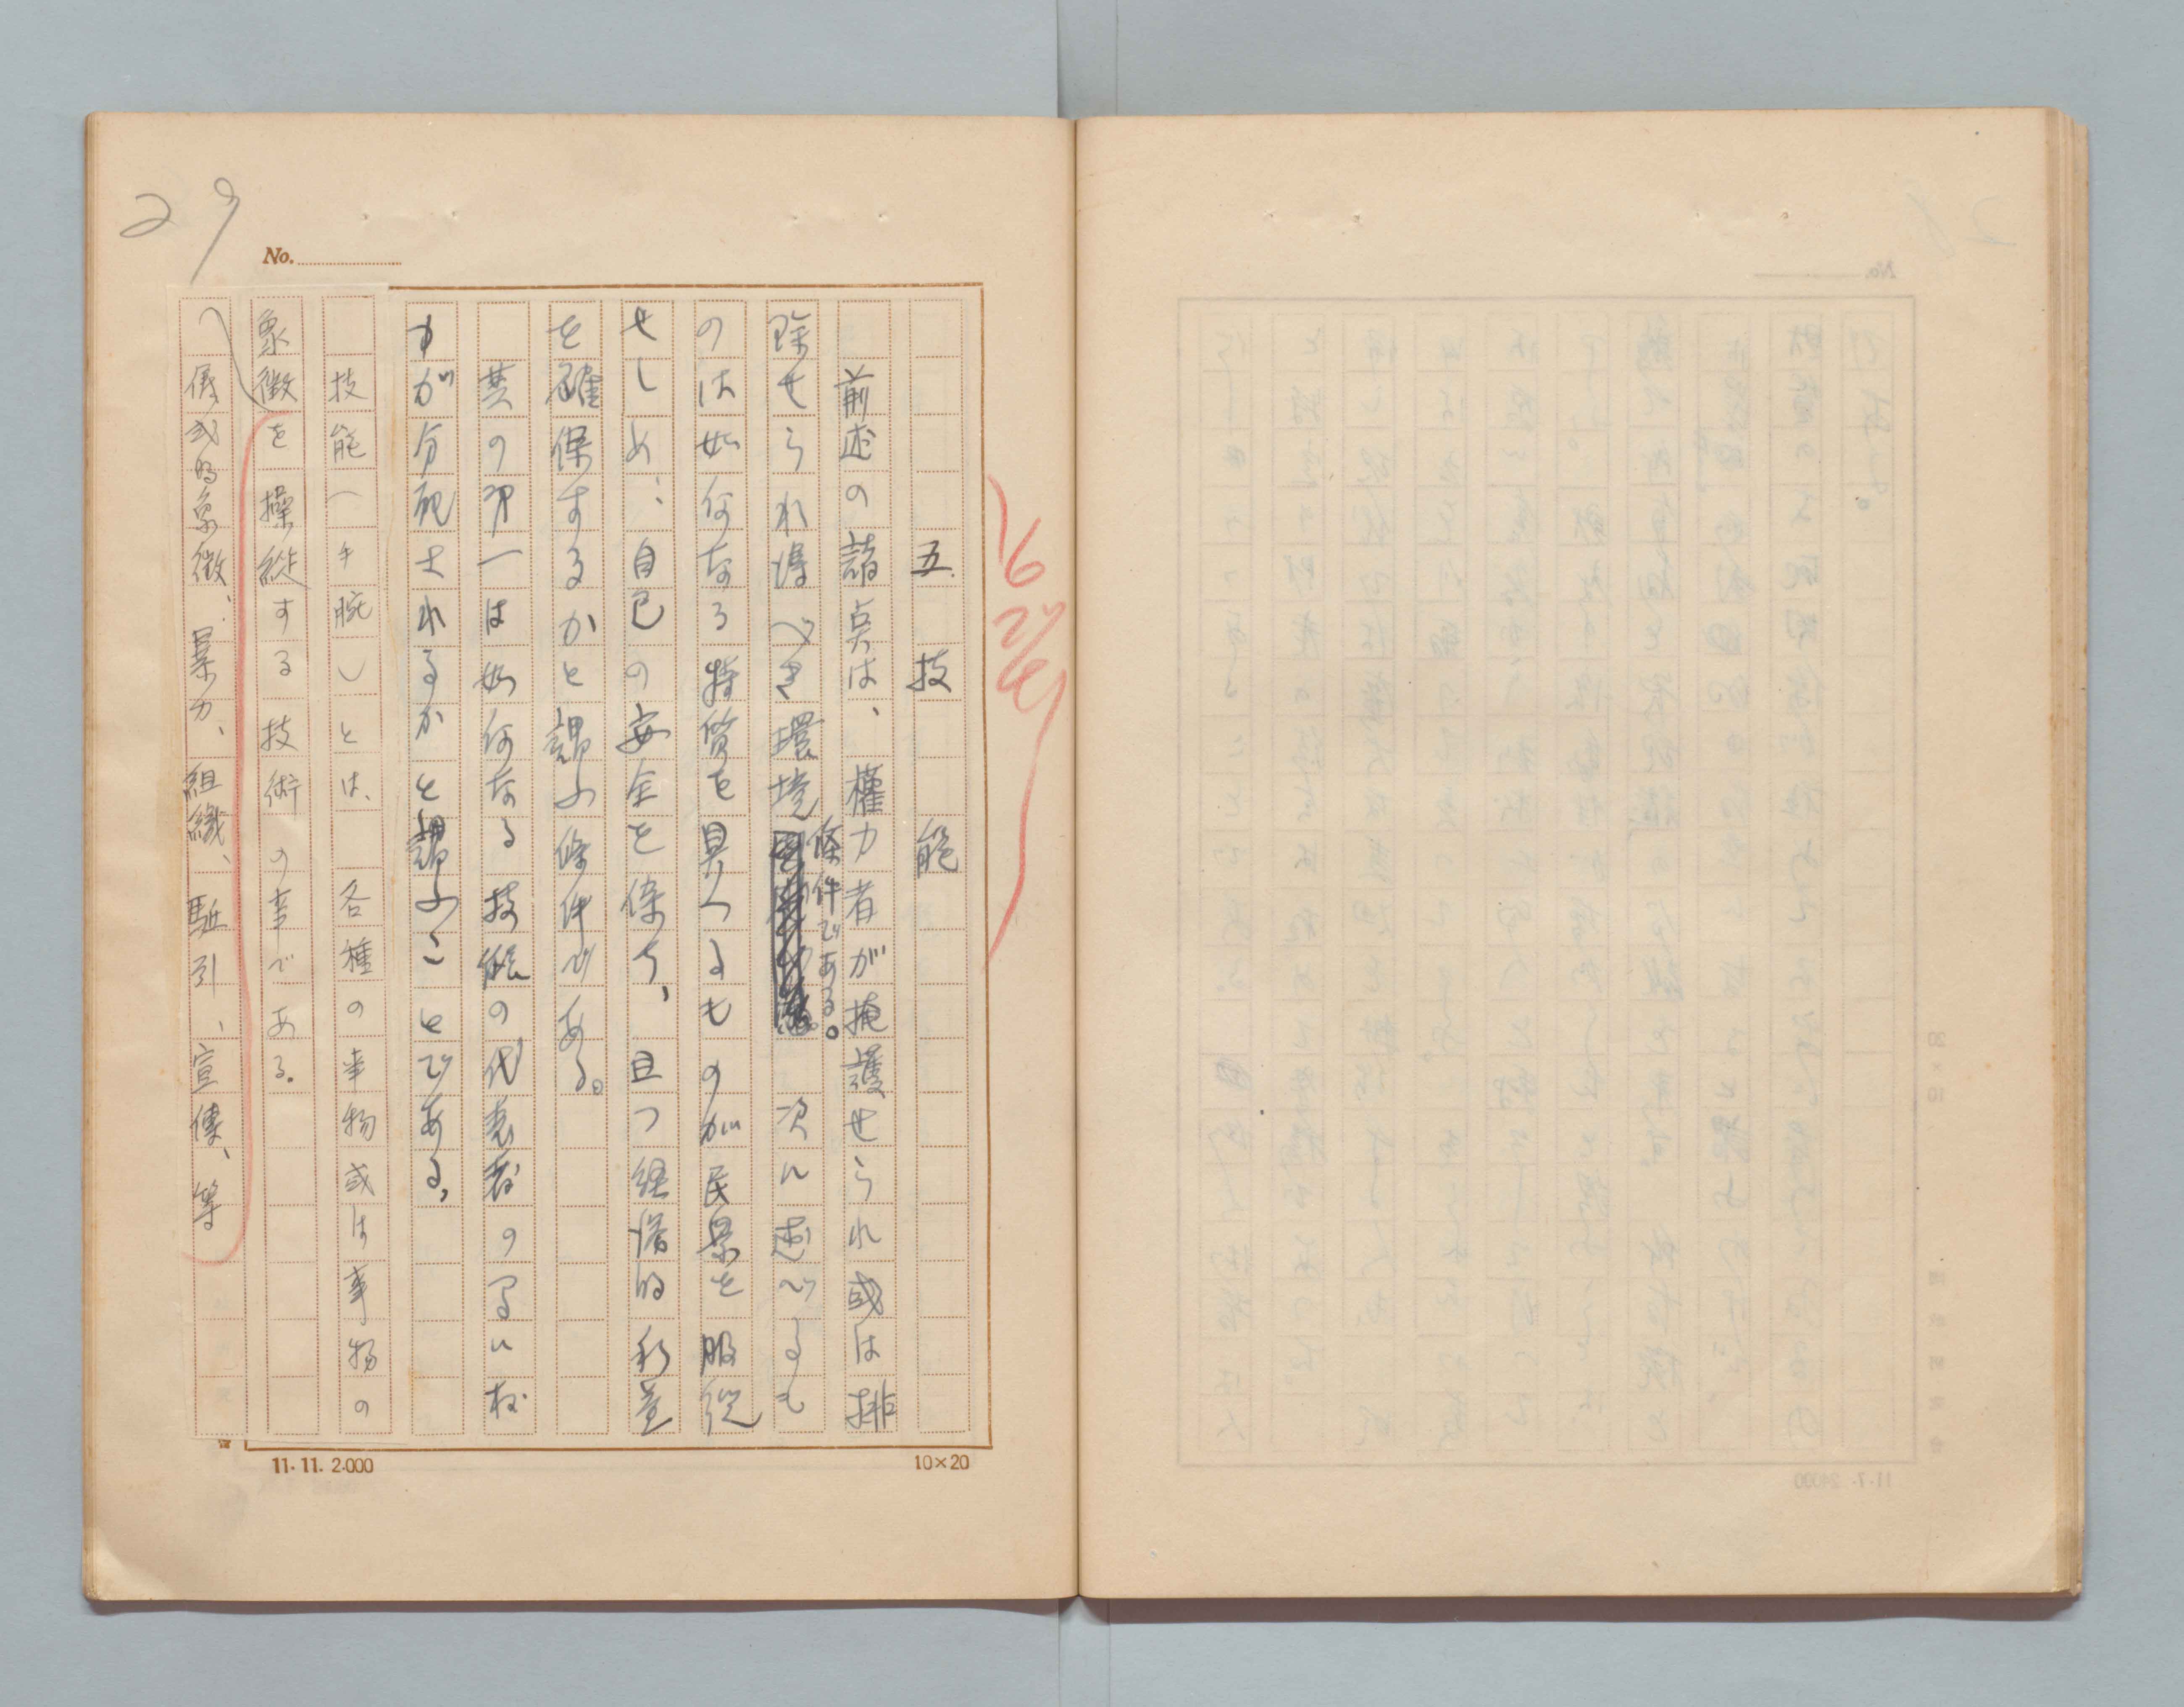 29
No.
16
五 技能
前述の諸点は、權力者が掩護せられ或は排
除せられ得べき環境條件である。 次に述べるも
のは如何なる特質を具へるものが民衆を服從
せしめ、自己の安全を保ち、且つ経済的利益
を確保するかと謂ふ條件である。
其の第一は如何なる技能の代表者の間に权
力が分配されるかと謂ふことである。
技能(手腕)とは、各種の事物或は事物の
象徴を操縦する技術の事である。
儀式的象徴、暴力、組織、駈引、宣傳、等
11.11.2.000
10×20